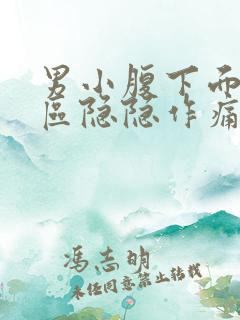 男小腹下而
區隐隐作痛
冯志明
未经同意禁止转载